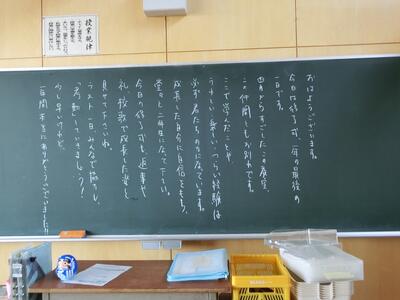 おはようございます。
今日は修了式、一年の最後の
一日です。
四月からすごしたこの教室、
この仲間ともお別れです。
ここで学んだことや
うれしい、楽しい、つらい経験は
必ず君たちの力になっています。
成長した自分に自信をもち、
堂々と二年生になって下さい。
今日の修了式も、返事や
礼、校歌で成長した姿を
見せて下さいね。
ラスト一日、みんなで協力し、
「考動」していきましょう!
少し早いけれど、
一年間本当にありがとうございました!!
授業規律